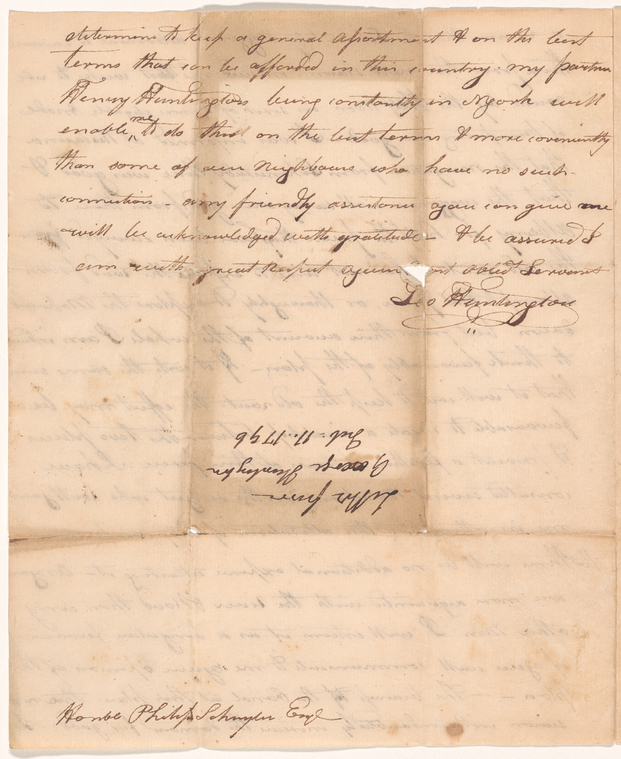 determine to keep a general assortment & on the best
terms that can be afforded in this country my partner
Henry Huntington being constantly in NYork will
enable me to do this on the best terms & more coveniently
than some of our Neighbours who have no such
connection - any friendly assistance you can give me
will be acknowledged with gratitude - & be assured I
am with great Respect your obedt Servant
Geo Huntington
Letter from
George Huntington
Feb. 11. 1796
Honble Philip Schuyler Esqr